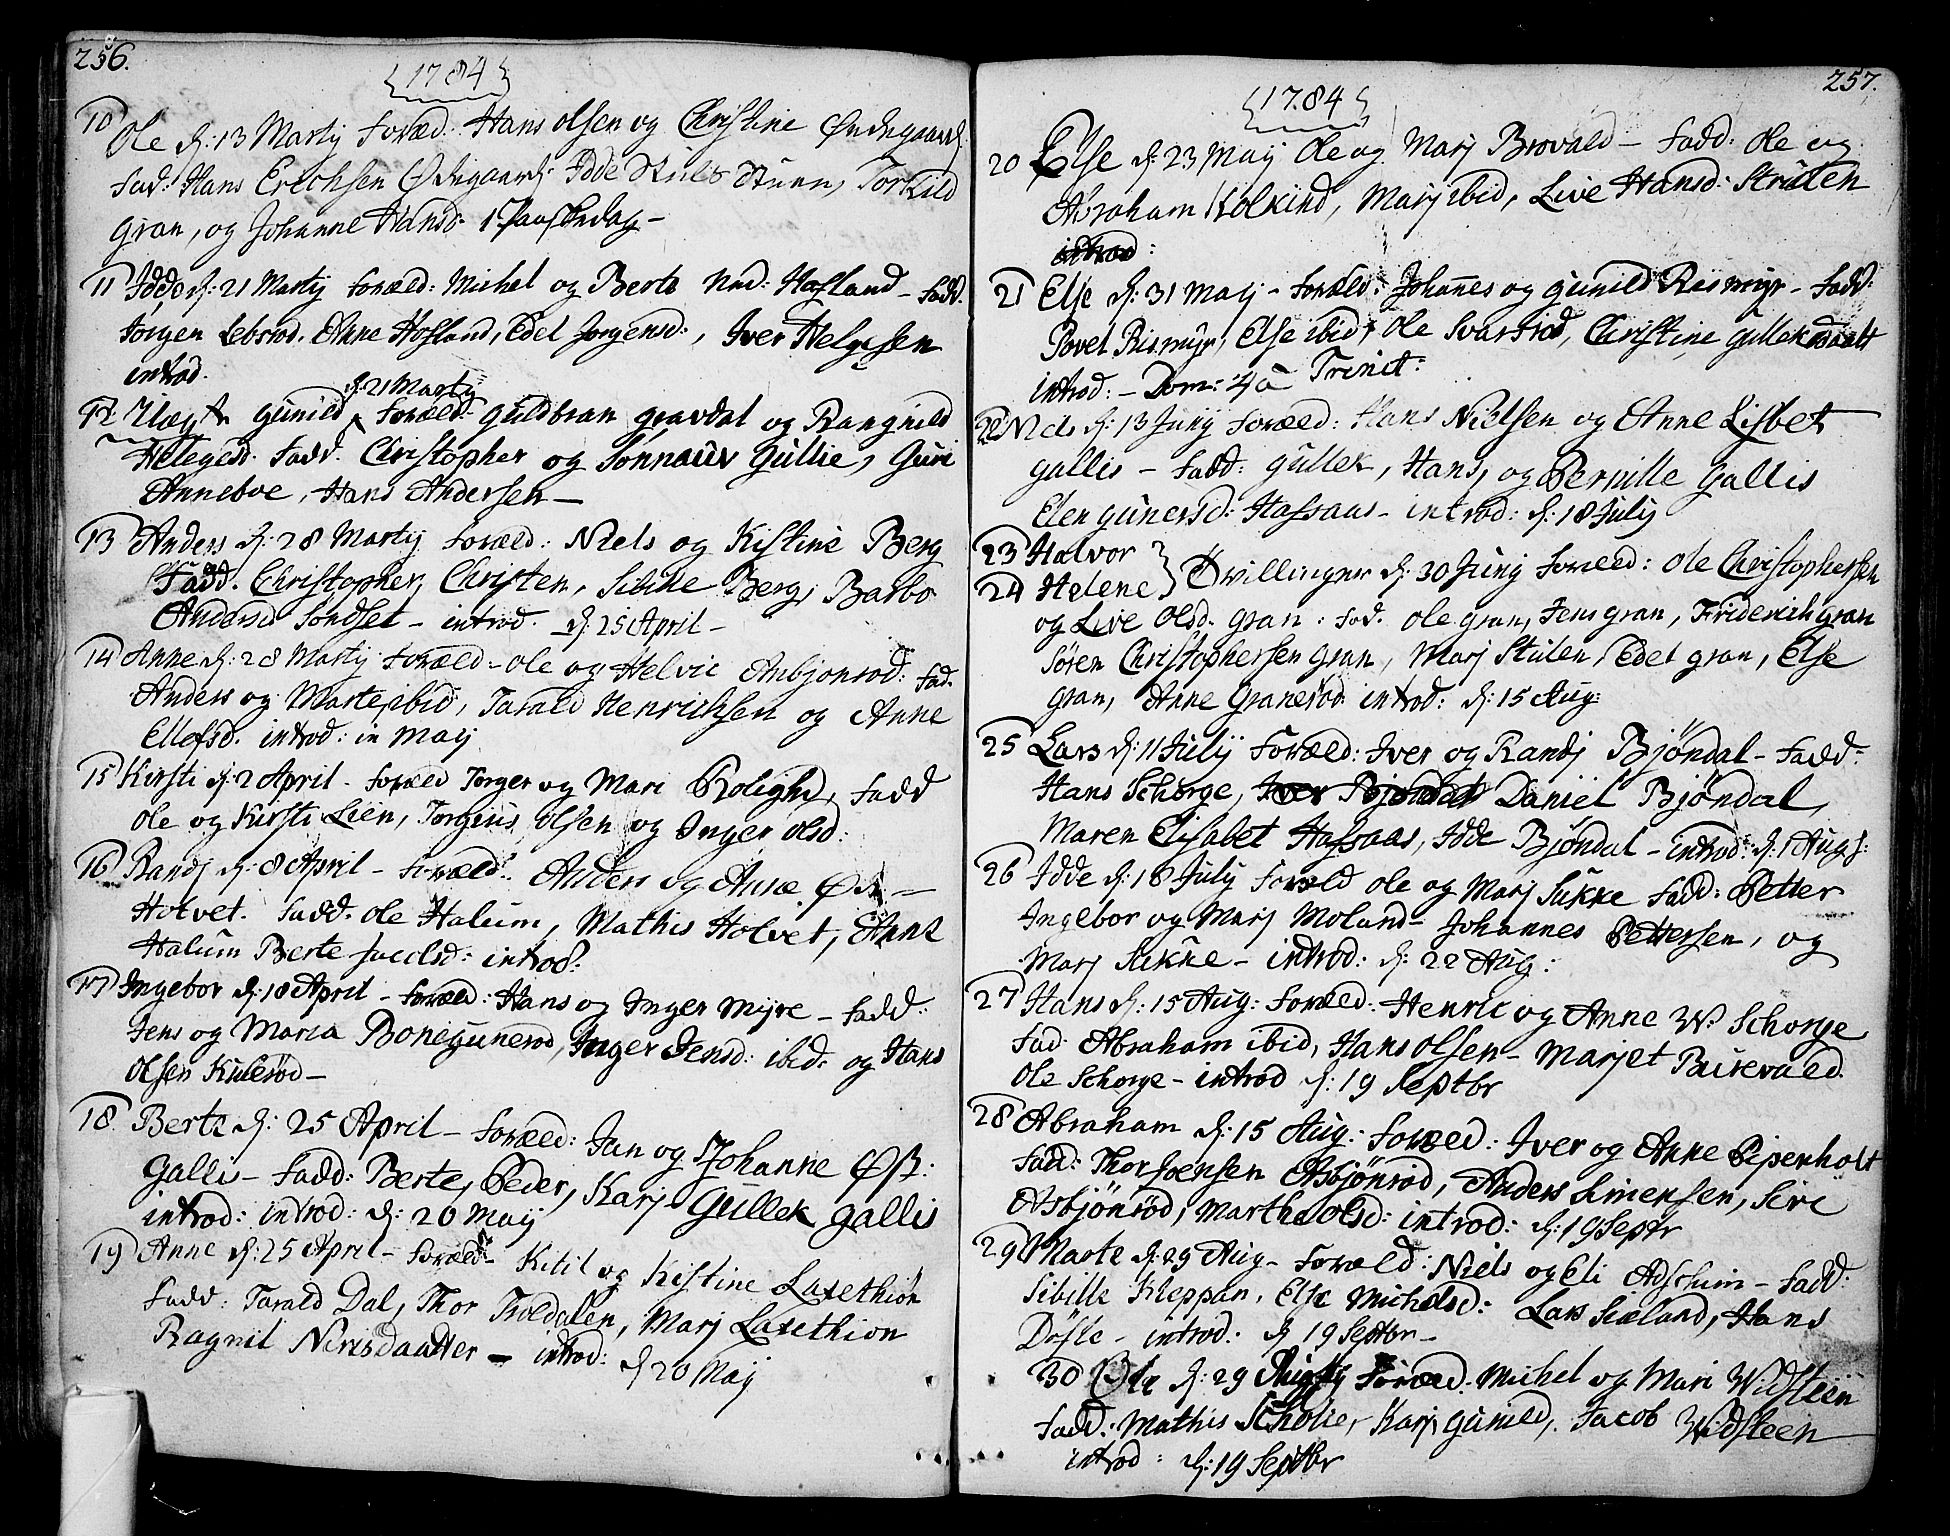 256.
1784
10 Ole d: 13 Martij Foræd: Hans Olsen og Christine Ødegaard
Fad: Hans Erichsen Ødegaard, Idde Stuen, Torkild
Gran, og Johanne Hansd: 1 Paaskedag –
11 Idde d: 21 Martij Foræld: Michel og Berte Hafland – Fadd.
Jørgen Lebsrod. Anne Hofland, Edel Jorgensd:, Iver Helgesen
introd.
d: 21 Martij
12. Uægte Gunild Foræld: Guldbran Gravdal og Rangnild
Helegesd. Fadd. Christopher og Sonnauv Gullie, Guri
Anneboe, Hans Andersen –
13 Anders d: 28 Martij Foræld: Niels og Kistine Berg
Fadd. Christopher, Christen, Sibille Berg, Barbo
Andersd Sondset – introd. d: 25 April –
14 Anne d: 28 Martij Foræld – Ole og Helvic Anbjonrod: Fad.
Anders og Marte ibid, Tarald Henrichsen og Anne
Ellefsd. introd: in Maij
15 Kirsti d: 2 April – Foræld Torger og Mari Rolighed, Fadd
Ole og Kirsti Lien, Torgius Olsen og Inger Olsd:
16 Randj d: 8 April – Foræld: Anders og Anne Øst –
Holvet. Fadd. Ole Halum, Mathis Holvet, Anne
Halum Berte introd:
17 Ingebor d: 18 April – Foræld: Hans og Inger Mijre – Fadd:
Jens og Maria Bonegunerod, Inger Jensd: ibid: og Hans
Olsen Kulerød –
18. Berte d: 25 April – Foræld: Jan og Johanne Øst:
Gallis – Fadd: Berte, Peder, Karj Gullek Gallis
introd: introd: d: 20 Maij
19 Anne d: 25 April – Foræld – Kitil og Kistine Laxethion
Fadd: Tarald Dal, Thor Troldalen, Marj Laxethion
Ragnil Nirisdaatter – introd: d 20 Maij
257.
1784
20 Else d: 23 Maij Ole og Marj Brovald – Fadd: Ole og
Abraham Kolkind, Marj ibid, Live Hansd: Stulen
introd:
21 Else d: 31 Maij – Foræld: Johannes og Gunild Rismijr – Fadd:
Povel Rismijr, Else ibid, Ole Svartrod, Christine Gulleksdaatt
introd: – Dom: 4 a Trinit:
22 Niels d: 13 Junij Foræld: Hans Nielsen og Anne Lisbet
Gallis – Fadd: Gullek, Hans, og Pernille Gallis
Elen Gunersd: Hafsaas – introd: d: 18 Julij
23 Halvor
24 Helene } Tvillinger d: 30 Junij Foræld: Ole Christophersen
og Live Olsd. Gran: Fad. Ole Gran, Jens Gran, Friderich Gran
Søren Christophersen Gran, Marj Stulen, Edel Gran, Else
Gran, Anne Granerod introd: d: 15 Aug:
25 Lars d: 11 Julij Foræld: Iver og Randj Bjöndal – Fadd:
Hans Schorge, Iver Bjondal Daniel Bjöndal,
Maren Elisabet Hafsaas, Idde Bjöndal – introd: d: 1 Aug:
26 Idde d: 18 Julij Foræld Ole og Marj Sukke Fadd: Petter
Ingebor og Marj Moland – Johannes Pettersen, og
Marj Sukke – introd: d: 22 Aug:
27 Hans d: 15 Aug: Foræld: Henric og Anne W. Schorge
Fad. Abraham ibid, Hans Olsen – Marjet Burevald.
Ole Schorge – introd d: 19 Septbr
28 Abraham d: 15 Aug: Foræld: Iver og Anne Pipenholt
Fadd: Thor Joensen Asbjönrod, Anders Simensen, Siri
Asbjönröd, Marthe Olsd: introd: d: 19 Septr
29 Marte d: 29 Aug – Foræld: Niels og Eli Adschim – Fadd:
Sibille Kleppan, Else Michelsd: Lars Siæland, Hans
Döfle – introd: d 19 Septbr –
30 Ole d: 29 Aug Foræld: Michel og Mari Widsteen
Fadd: Mathis Scholie, Karj, Gunild, Jacob Widsteen
introd: d: 19 Septbr